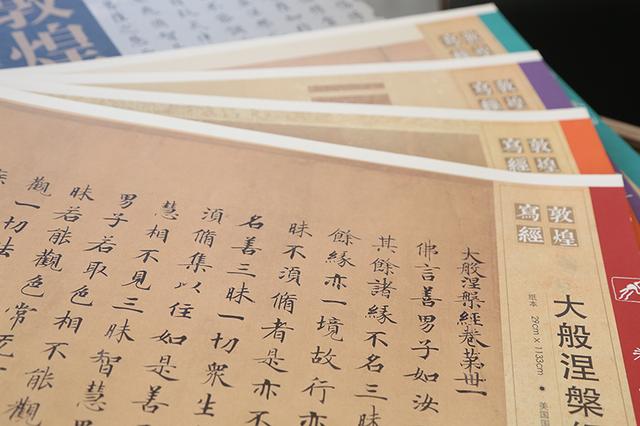 敦煌
敦煌
寫經
敦煌
寫經
敦煌
寫經
敦煌
寫經
大般涅槃
纸本 29cm × 1133cm ● 美国国
大般涅槃經卷第卅一
佛言善男子如汝
其餘諸緣不名三
餘緣亦一境故行亦
昧不須脩者是亦不
名善三昧一切衆生
須脩集以住如是善
慧相不見三昧智慧
男子若取色相不能觀
昧若能觀色常无
觀一切法